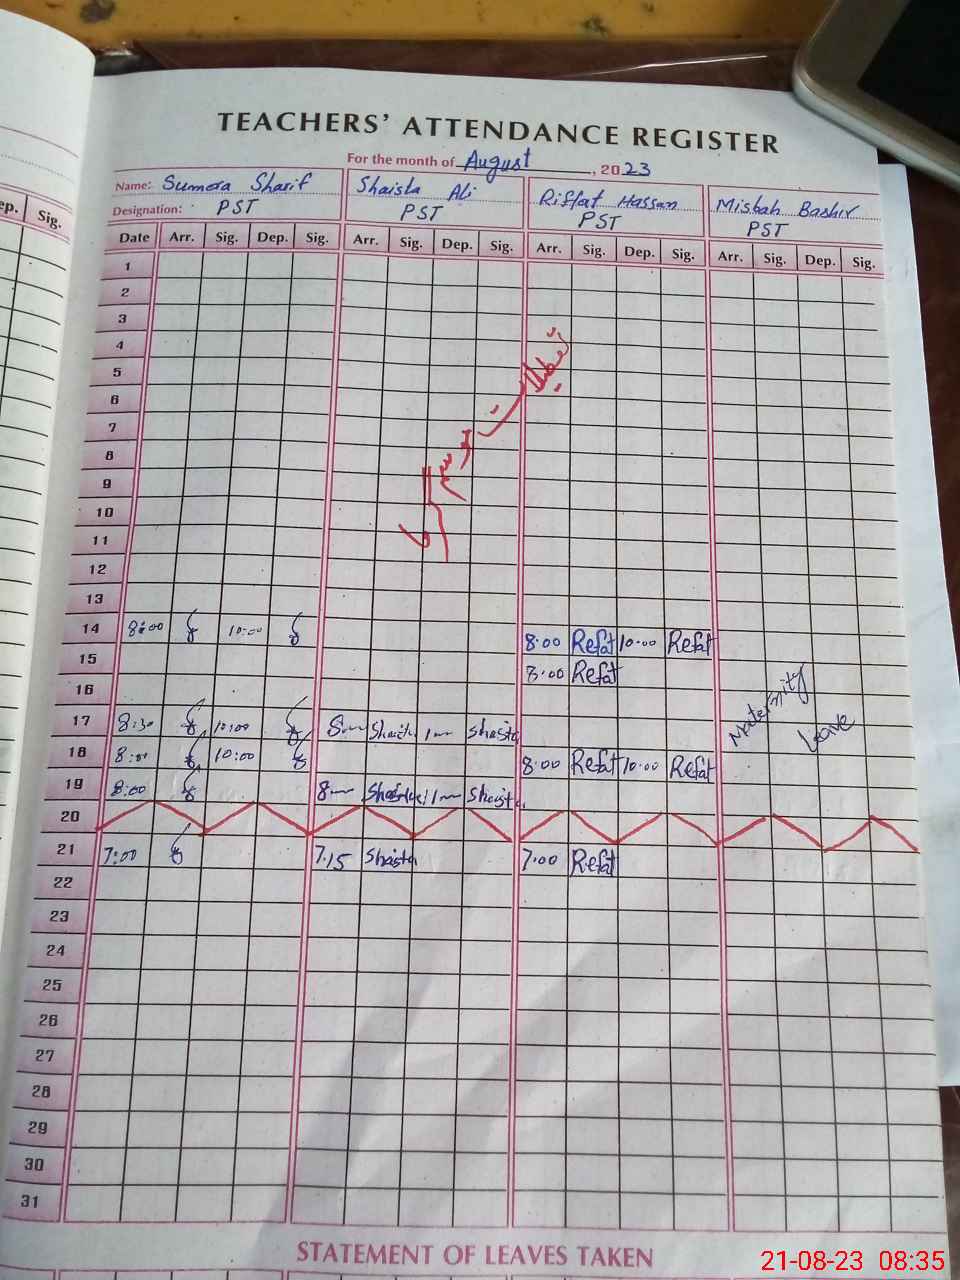 TEACHERS' ATTENDANCE REGISTER
For the month of August, 2023
Name: Sumera Sharif Shaista Ali Riffat Hassan Misbah Bashir
Designation: PST PST PST PST
ep. Sig. Date Arr. Sig. Dep. Sig. Arr. Sig. Dep. Sig. Arr. Sig. Dep. Sig. Arr. Sig. Dep. Sig.
1
2
3
4
5
6
7
8
9
10
11
12
13
تعطیلات موسم گرما
14 8:00 10:00 8:00 Refat 10:00 Refat
15 8:00 Refat
16
17 8:30 10:00 8 Shaista 1 Shaista
18 8:00 10:00 8:00 Refat 10:00 Refat
19 8:00 8 Shaista 1 Shaista
Maternity Leave
20
21 7:00 7.15 Shaista 7:00 Refat
22
23
24
25
26
27
28
29
30
31
STATEMENT OF LEAVES TAKEN
21-08-23 08:35